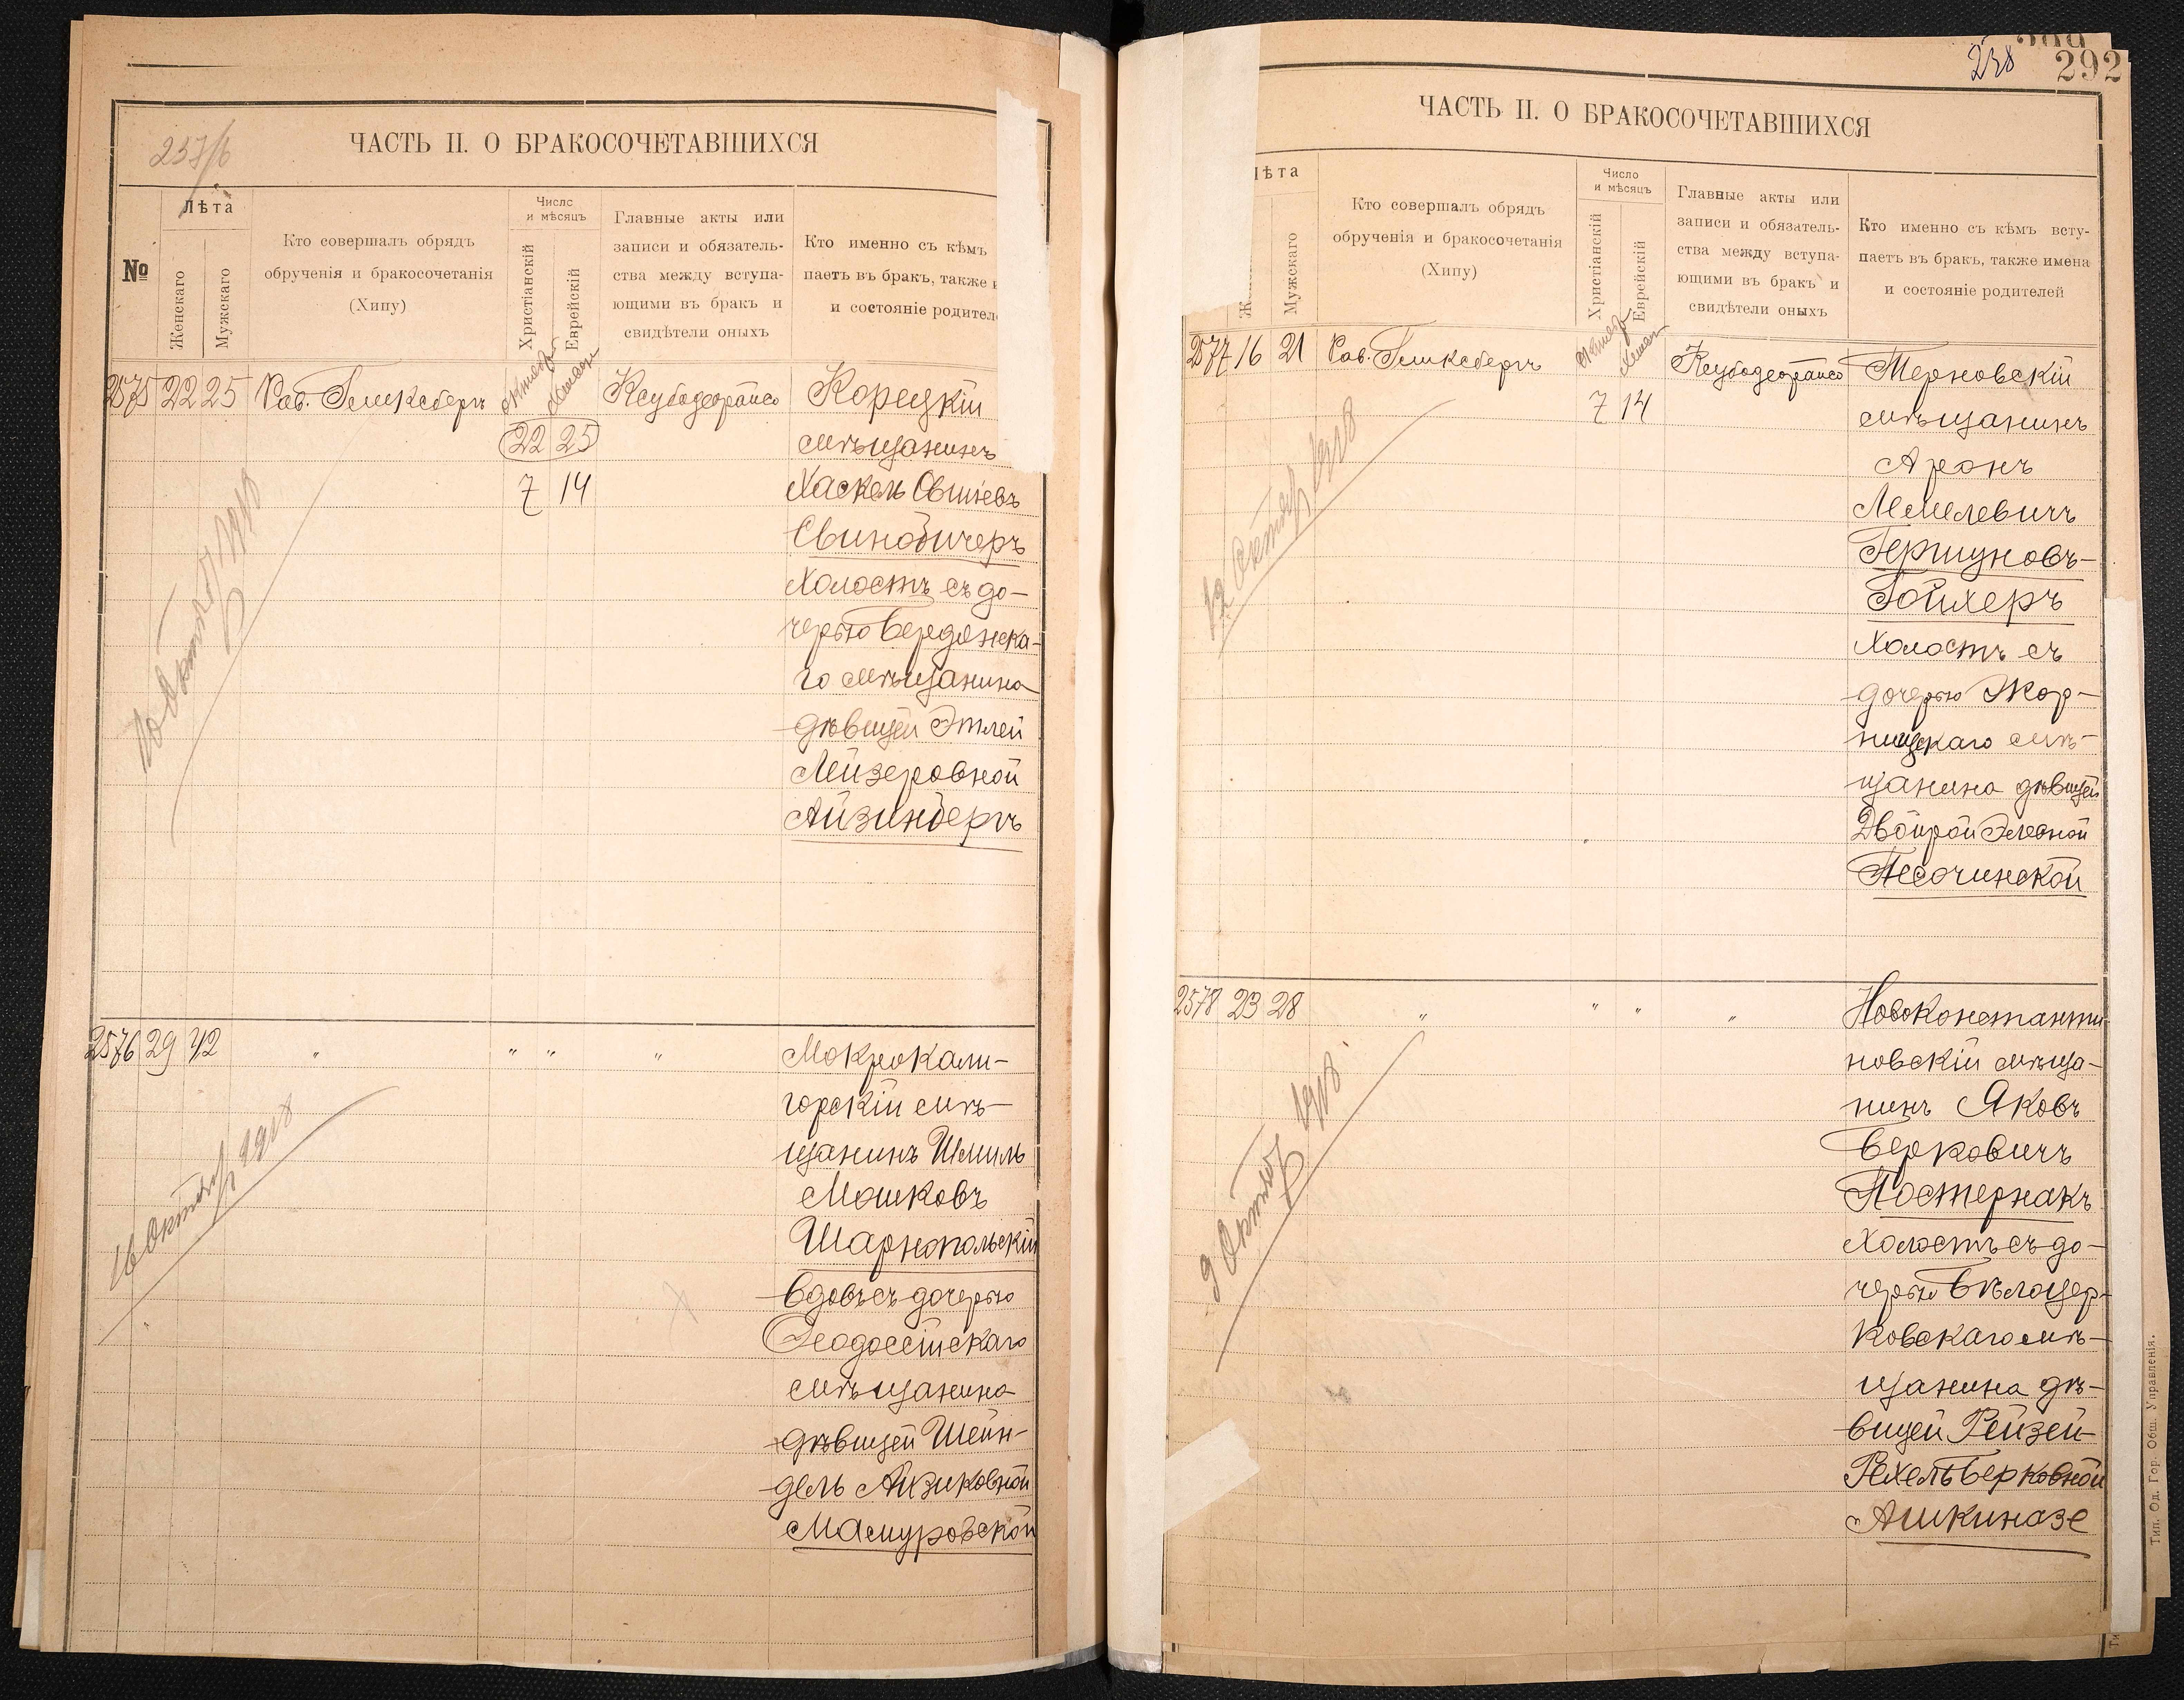 257/б
ЧАСТЬ II. О БРАКОСОЧЕТАВШИХСЯ
№
Лѣта
Женскаго
Мужскаго
Кто совершалъ обрядъ
обрученія и бракосочетанія
(Хипу)
Число
и мѣсяцъ
Христіанскій
Еврейскій
Главные акты или
записи и обязатель-
ства между вступа-
ющими въ бракъ и
свидѣтели оныхъ
Кто именно съ кѣмъ
паетъ въ бракъ, также
и состояніе родител
2575 22 25 Рав. Гликсбергъ октябр Хешван Ксубадеорайсо Корецкій
22 25 мѣщанинъ
7 14 Хаскель Овшіевъ
Свинобичеръ
холостъ съ до-
черью Бердянска-
го мѣщанина
дѣвицей Этлей
Лейзеровной
Айзинбергъ
10 Октября 1918
2576 29 42 " " " " Мокрокали-
горскій мѣ-
щанинъ Шмиль
Мошковъ
Шарнопольскій
вдовъ съ дочерью
Ѳеодоссійскаго
мѣщанина
дѣвицей Шейн-
дель Айзиковной
Мамуровской
16 Октября 1918
258
292
ЧАСТЬ II. О БРАКОСОЧЕТАВШИХСЯ
ѣта
Мужскаго
Кто совершалъ обрядъ
обрученія и бракосочетанія
(Хипу)
Число
и мѣсяцъ
Христіанскій
Еврейскій
Главные акты или
записи и обязатель-
ства между вступа-
ющими въ бракъ и
свидѣтели оныхъ
Кто именно съ кѣмъ всту-
паетъ въ бракъ, также имена
и состояніе родителей
2577 16 21 Рав. Гликсбергъ октябр Хешван Ксубадеорайсо Терновскій
7 14 мѣщанинъ
Аронъ
Лемелевичъ
Гершуновъ-
Бойхеръ
холостъ съ
дочерью Жор-
нищскаго мѣ-
щанина дѣвицей
Двойрой Элевной
Песочинской
12 Октября 1918
2578 23 28 " " " " Новоконстанти-
новскій мѣща-
нинъ Яковъ
Берковичъ
Постернакъ
холостъ съ до-
черью Бѣлоцер-
ковскаго мѣ-
щанина дѣ-
вицей Рейзей-
Рехель Берковной
Ашкиназе
9 Октября 1918
Тип. Од. Гор. Общ. Управленія.